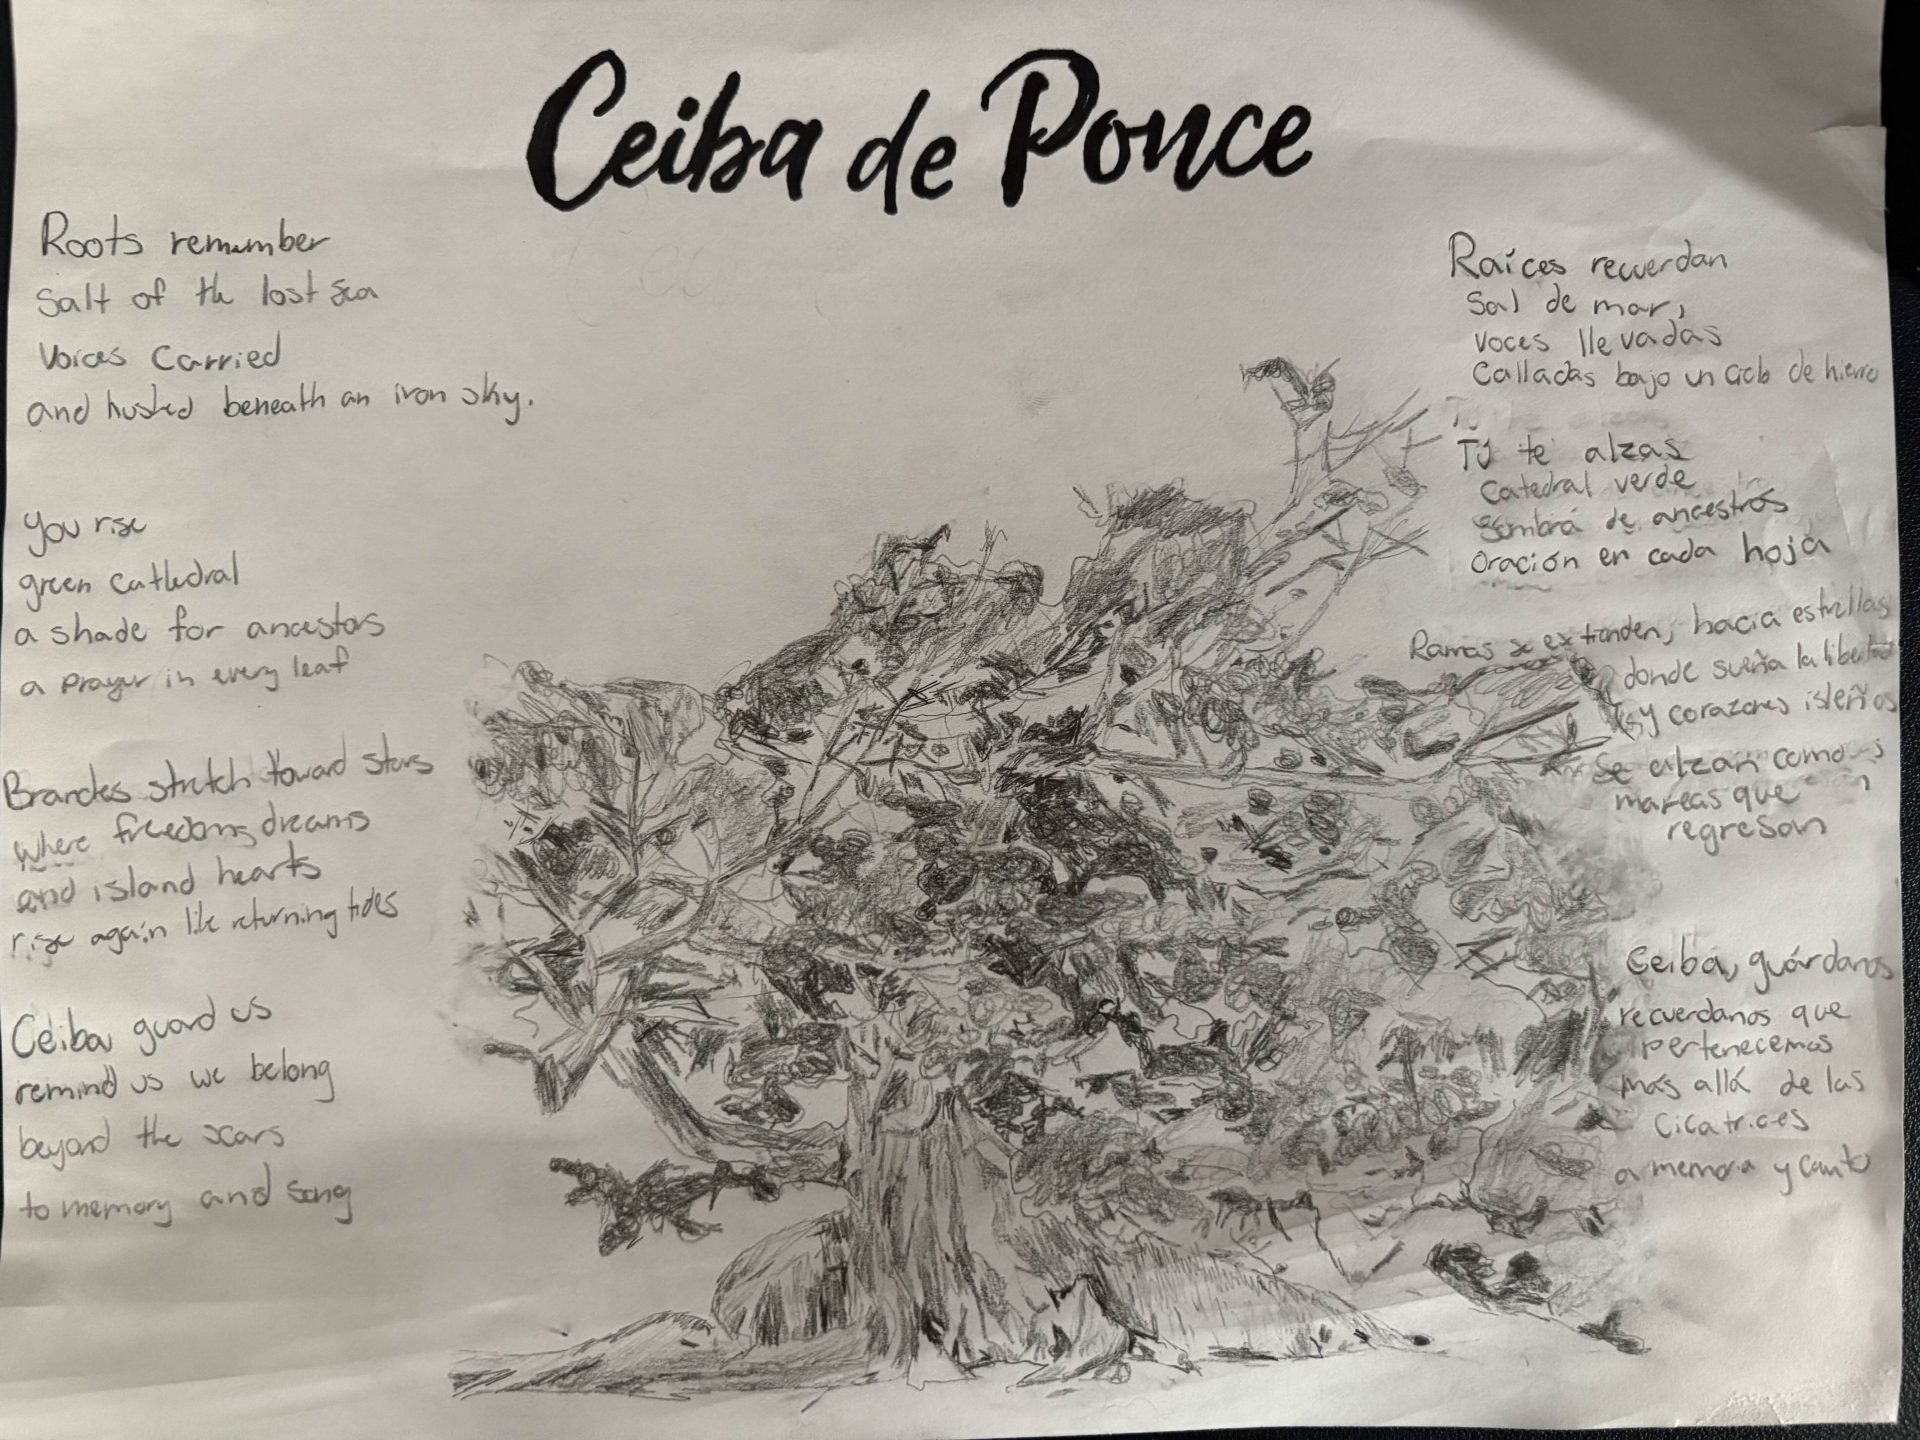 Ceiba de Ponce
Roots remember
Salt of the lost sea
Voices Carried
and hushed beneath an iron sky.
you rise
green cathedral
a shade for ancestors
a prayer in every leaf
Branches stretch toward stars
where freedoms dreams
and island hearts
rise again like returning tides
Ceiba guard us
remind us we belong
beyond the scars
to memory and song
Raíces recuerdan
Sal de mar,
voces llevadas
Calladas bajo un Cielo de hierro
Tú te alzas
Catedral verde
Sombra de ancestros
Oración en cada hoja
Ramas se extienden, hacia estrellas
donde sueña la libertad
y corazones isleños
Se alzan como
mareas que
regresan
Ceiba, guárdanos
recuerdanos que
pertenecemos
más allá de las
Cicatrices
a memoria y canto